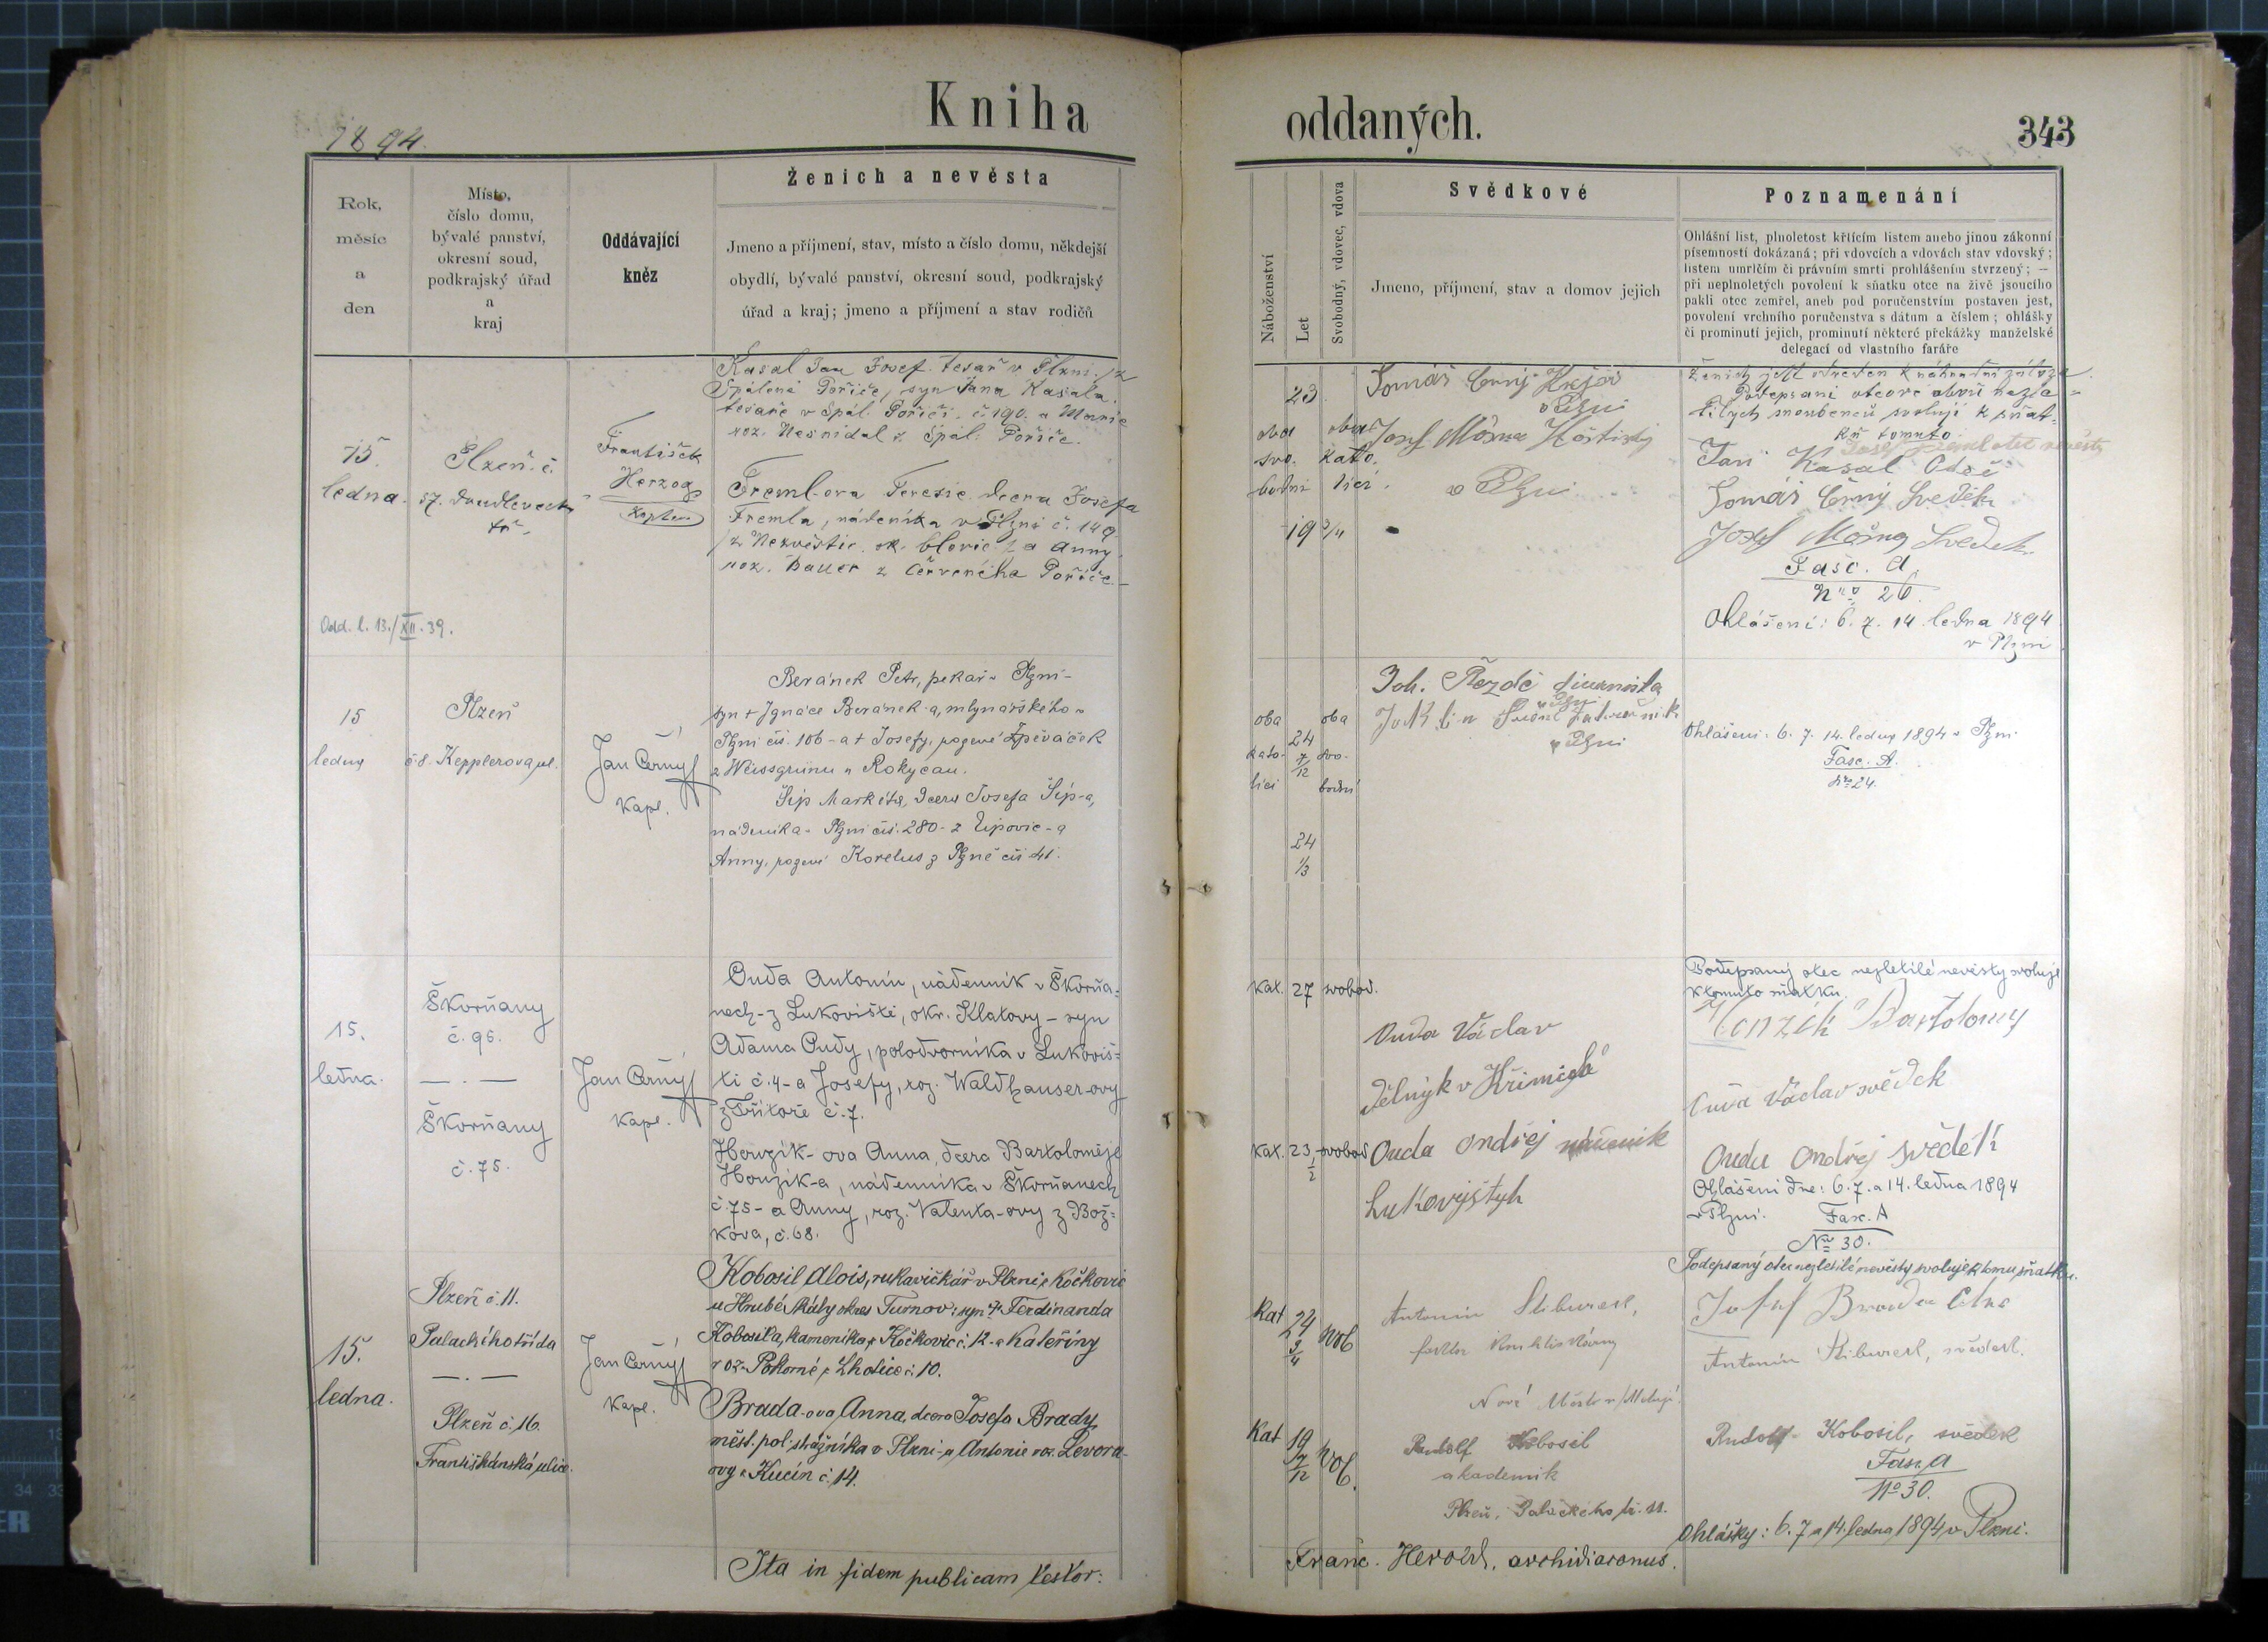 Kniha
oddaných.
343
1894.
Rok,
měsíc
a
den
Místo,
číslo domu,
bývalé panství,
okresní soud,
podkrajský úřad
a
kraj
Oddávající
kněz
Ženich a nevěsta
Jmeno a příjmení, stav, místo a číslo domu, někdejší
obydlí, bývalé panství, okresní soud, podkrajský
úřad a kraj; jmeno a příjmení a stav rodičů
Náboženství
Let
Svobodný, vdovec, vdova
Svědkové
Jmeno, příjmení, stav a domov jejich
Poznamenání
Ohlášní list, plnoletost křtícím listem anebo jinou zákonní
písemností dokázaná; při vdovcích a vdovách stav vdovský;
listem umrlčím či právním smrti prohlášením stvrzený; —
při neplnoletých povolení k sňatku otce na živě jsoucího
pakli otec zemřel, aneb pod poručenstvím postaven jest,
povolení vrchního poručenstva s dátum a číslem; ohlášky
či prominutí jejich, prominutí některé překážky manželské
delegací od vlastního faráře
15.
ledna.
Plzeň č.
57.
František
Herzog
Kaplan
Kasal Jan Josef tesař v Plzni, z
Spálené Pořičí, syn Jana Kasala,
tesaře v Spál. Pořičí č. 190. a Marie
roz. Nesnídal z Spál. Pořičí.
Tremlova Teresie dcera Josefa
Tremla, nádeníka v Plzni č. 149
z Nezvěstic ok. Blovic a Anny
roz. Bauer z Červeného Poříčí.
Odd. l. 13./XII. 39.
23
oba
svo.
bodni
oba
kato.
lící.
19 3/4
Tomáš Černý
v Plzni
Josef
v Plzni
Podepsaní otcové obou nezle-
tilých snoubenců svolují k sňat-
ku tomuto
Jan Kasal Otec
Tomáš Černý Svědek
Josef Svědek
Fasc. A.
Nro 26.
Ohlášení: 6. 7. 14. ledna 1894
v Plzni
15
ledna
Plzeň
č. 8. Kepplerova ul.
Jan Černý
Kapl.
Beránek Petr, pekař v Plzni -
syn + Ignáce Beránek-a, mlynářského v
Plzni čís. 106 - a + Josefy, rozené Zpěváček
z Weissgrünu u Rokycan.
Šíp Markéta, dcera Josefa Šíp-a,
nádeníka v Plzni čís. 280 - z Lipovic - a
Anny, rozené Korelus z Plzně čís 41.
oba
kato-
líci
24
7/12
oba
svo-
bodni
24
1/3
Joh.
v Plzni
v Plzni
Ohlášení: 6. 7. 14. ledna 1894 v Plzni
Fasc. A.
Nro 24.
15.
ledna.
Škorňany
č. 95.
— . —
Škorňany
č. 75.
Jan Černý
Kapl.
Ouda Antonín, nádenník v Škorňa-
nech - z Lukoviště, okr. Klatovy - syn
Adama Oudy, polodvorníka v Lukoviš-
ti č. 4 - a Josefy, roz. Waldhauser-ovy
z č. 7.
Honzík-ova Anna, dcera Bartoloměje
Honzík-a, nádenníka v Škorňanech
č. 75 - a Anny, roz. Valenta-ovy z Bož-
kova, č. 68.
Kat. 27 svobod.
Kat. 23 1/2 svobod
Ouda Václav
dělnyk v Křimicých
Ouda Ondřej
Lukovyštyh
Podepsaný otec nezletilé nevěsty svoluje
k tomuto sňatku.
Honzík Bartolomy
Ouda Václav svědek
Ouda Ondřej svědek
Ohlášení dne: 6. 7. a 14. ledna 1894
v Plzni. Fasc. A
Nro 30.
15.
ledna.
Plzeň č. 11.
Palackého třída
— . —
Plzeň č. 16.
Františkánská ulice.
Jan Černý
Kapl.
Kobosil Alois, rukavičkář v Plzni z Kočkovic
u Hrubé Skály okres Turnov: syn + Ferdinanda
Kobosila, kameníka z Kočkovic č. 12 - a Kateřiny
roz. Pokorné z Lhotice č. 10.
Brada-ova Anna, dcera Josefa Brady,
měst. pol. strážníka v Plzni - a Antonie roz. Levora-
ovy z Kucín č. 14.
Kat
24
3/4
svob
Kat
19
7/12
svob.
Antonín
Nové Město n/Metují
Rudolf Kobosil
akademik
Plzeň, Palackého tř. 11.
Podepsaný otec nezletilé nevěsty svoluje k tomu sňatku.
Josef Brada Otec
Antonín svědek.
Rudolf Kobosil, svědek
Fasc. A
No 30.
Ohlášky: 6. 7 a 14. ledna 1894 v Plzni.
Ita in fidem publicam testor:
Franc. Herold, archidiaconus.